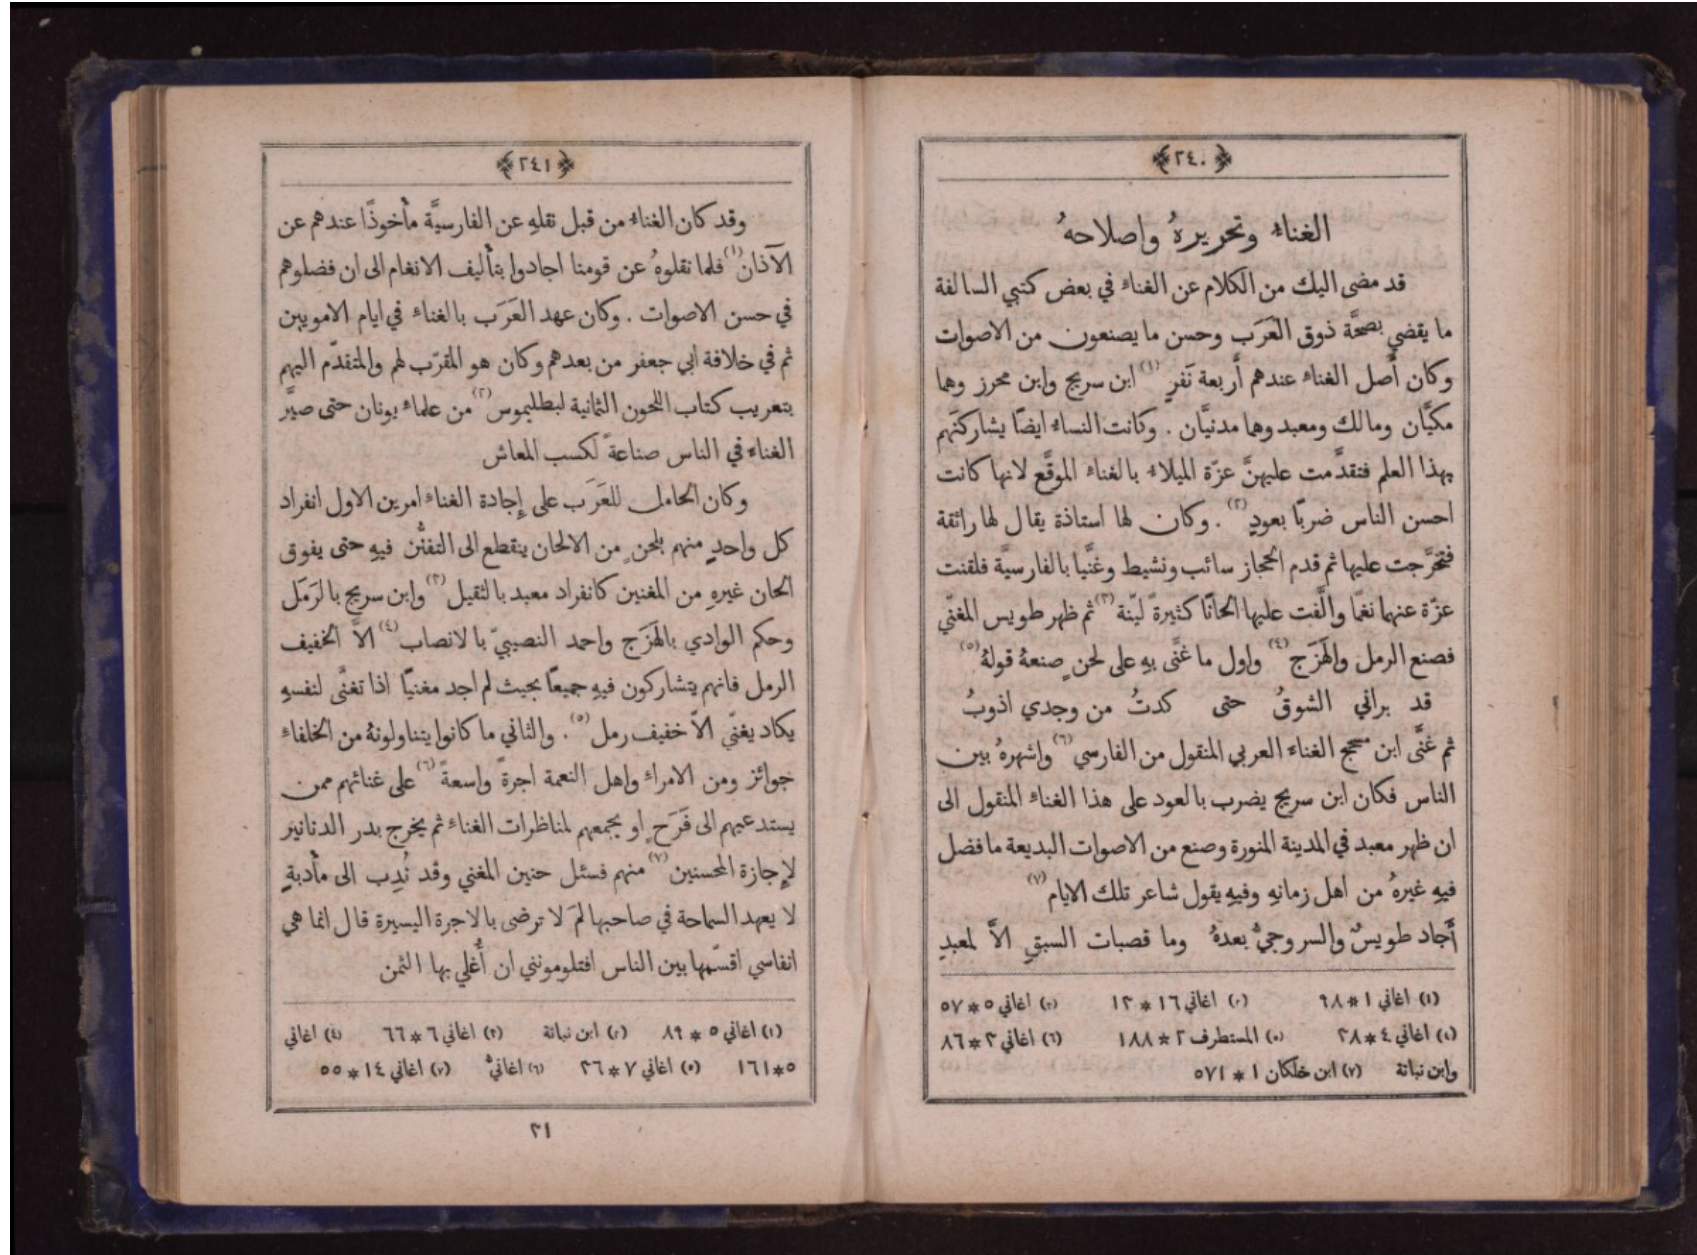 ﴿٢٤٠﴾
الغناء وتحريرهُ واصلاحهُ
قد مضى اليك من الكلام عن الغناء في بعض كتبي السالفة
ما يقضي بصحَّة ذوق العَرَب وحسن ما يصنعون من الاصوات
وكان أَصل الغناء عندهم أَربعة نَفرٍ (١) ابن سريج وابن محرز وهما
مكيَّان ومالك ومعبد وهما مدنيَّان . وكانت النساء ايضًا يشاركنَهم
بهذا العلم فتقدَّمت عليهنَّ عزّة الميلاء بالغناء الموقَّع لانها كانت
احسن الناس ضربًا بعودٍ (٢) . وكان لها استاذة يقال لها رائقة
فتخرَّجت عليها ثم قدم الحجاز سائب ونشيط وغنَّيا بالفارسيَّة فلقنت
عزّة عنهما نغمًا والَّفت عليها الحانًا كثيرةً ليّنة (٣) ثم ظهر طويس المغنّي
فصنع الرمل والهَزَج (٤) واول ما غنَّى بهِ على لحنٍ صنعهُ قولهُ (٥)
قد براني الشوقُ حتى كدتُ من وجدي اذوبُ
ثم غنَّى ابن مسحج الغناء العربي المنقول من الفارسي (٦) واشهرهُ بين
الناس فكان ابن سريج يضرب بالعود على هذا الغناء المنقول الى
ان ظهر معبد في المدينة المنورة وصنع من الاصوات البديعة ما فضل
فيهِ غيرهُ من اهل زمانهِ وفيهِ يقول شاعر تلك الايام (٧)
أَجاد طويسٌ والسروجيُّ بعدهُ وما قصبات السبقِ الاَّ لمعبدِ
(١) اغاني ١ * ٩٨ (٢) اغاني ١٦ * ١٣ (٣) اغاني ٥ * ٥٧
(٤) اغاني ٤ * ٣٨ (٥) المستطرف ٢ * ١٨٨ (٦) اغاني ٣ * ٨٦
وابن نباتة (٧) ابن خلكان ١ * ٥٧١
﴿٢٤١﴾
وقد كان الغناء من قبل نقلهِ عن الفارسيَّة مأخوذًا عندهم عن
الآذان (١) فلما نقلوهُ عن قومنا اجادوا بتأليف الانغام الى ان فضلوهم
في حسن الاصوات . وكان عهد العَرَب بالغناء في ايام الامويين
ثم في خلافة ابي جعفر من بعدهم وكان هو المقرّب لهم والمتقدّم اليهم
بتعريب كتاب اللحون الثمانية لبطليموس (٢) من علماء يونان حتى صيَّر
الغناء في الناس صناعةً لكسب المعاش
وكان الحامل للعَرَب على إِجادة الغناء امرين الاول انفراد
كل واحدٍ منهم بلحنٍ من الالحان ينقطع الى التفنُّن فيهِ حتى يفوق
الحان غيرهِ من المغنين كانفراد معبد بالثقيل (٣) وابن سريج بالرَمَل
وحكم الوادي بالهَزَج واحمد النصيبيّ بالانصاب (٤) الاَّ الخفيف
الرمل فانهم يتشاركون فيهِ جميعًا بحيث لم اجد مغنيًا اذا تغنَّى لنفسهِ
يكاد يغنّي الاَّ خفيف رمل (٥) . والثاني ما كانوا يتناولونهُ من الخلفاء
جوائز ومن الامراء واهل النعمة اجرةً واسعةً (٦) على غنائهم ممن
يستدعيهم الى فَرَحٍ او يجمعهم لمناظرات الغناء ثم يخرج بدر الدنانير
لإِجازة المحسنين (٧) منهم فسئل حنين المغني وقد نُدِب الى مأدبةٍ
لا يعهد السماحة في صاحبها لمَ لا ترضى بالاجرة اليسيرة قال انما هي
انفاسي اقسّمها بين الناس افتلومونني ان أُغلي بها الثمن
(١) اغاني ٥ * ٨٩ (٢) ابن نباتة (٣) اغاني ٦ * ٦٦ (٤) اغاني
٥ * ١٦١ (٥) اغاني ٧ * ٣٦ (٦) اغانيّ (٧) اغاني ١٤ * ٥٥
٣١